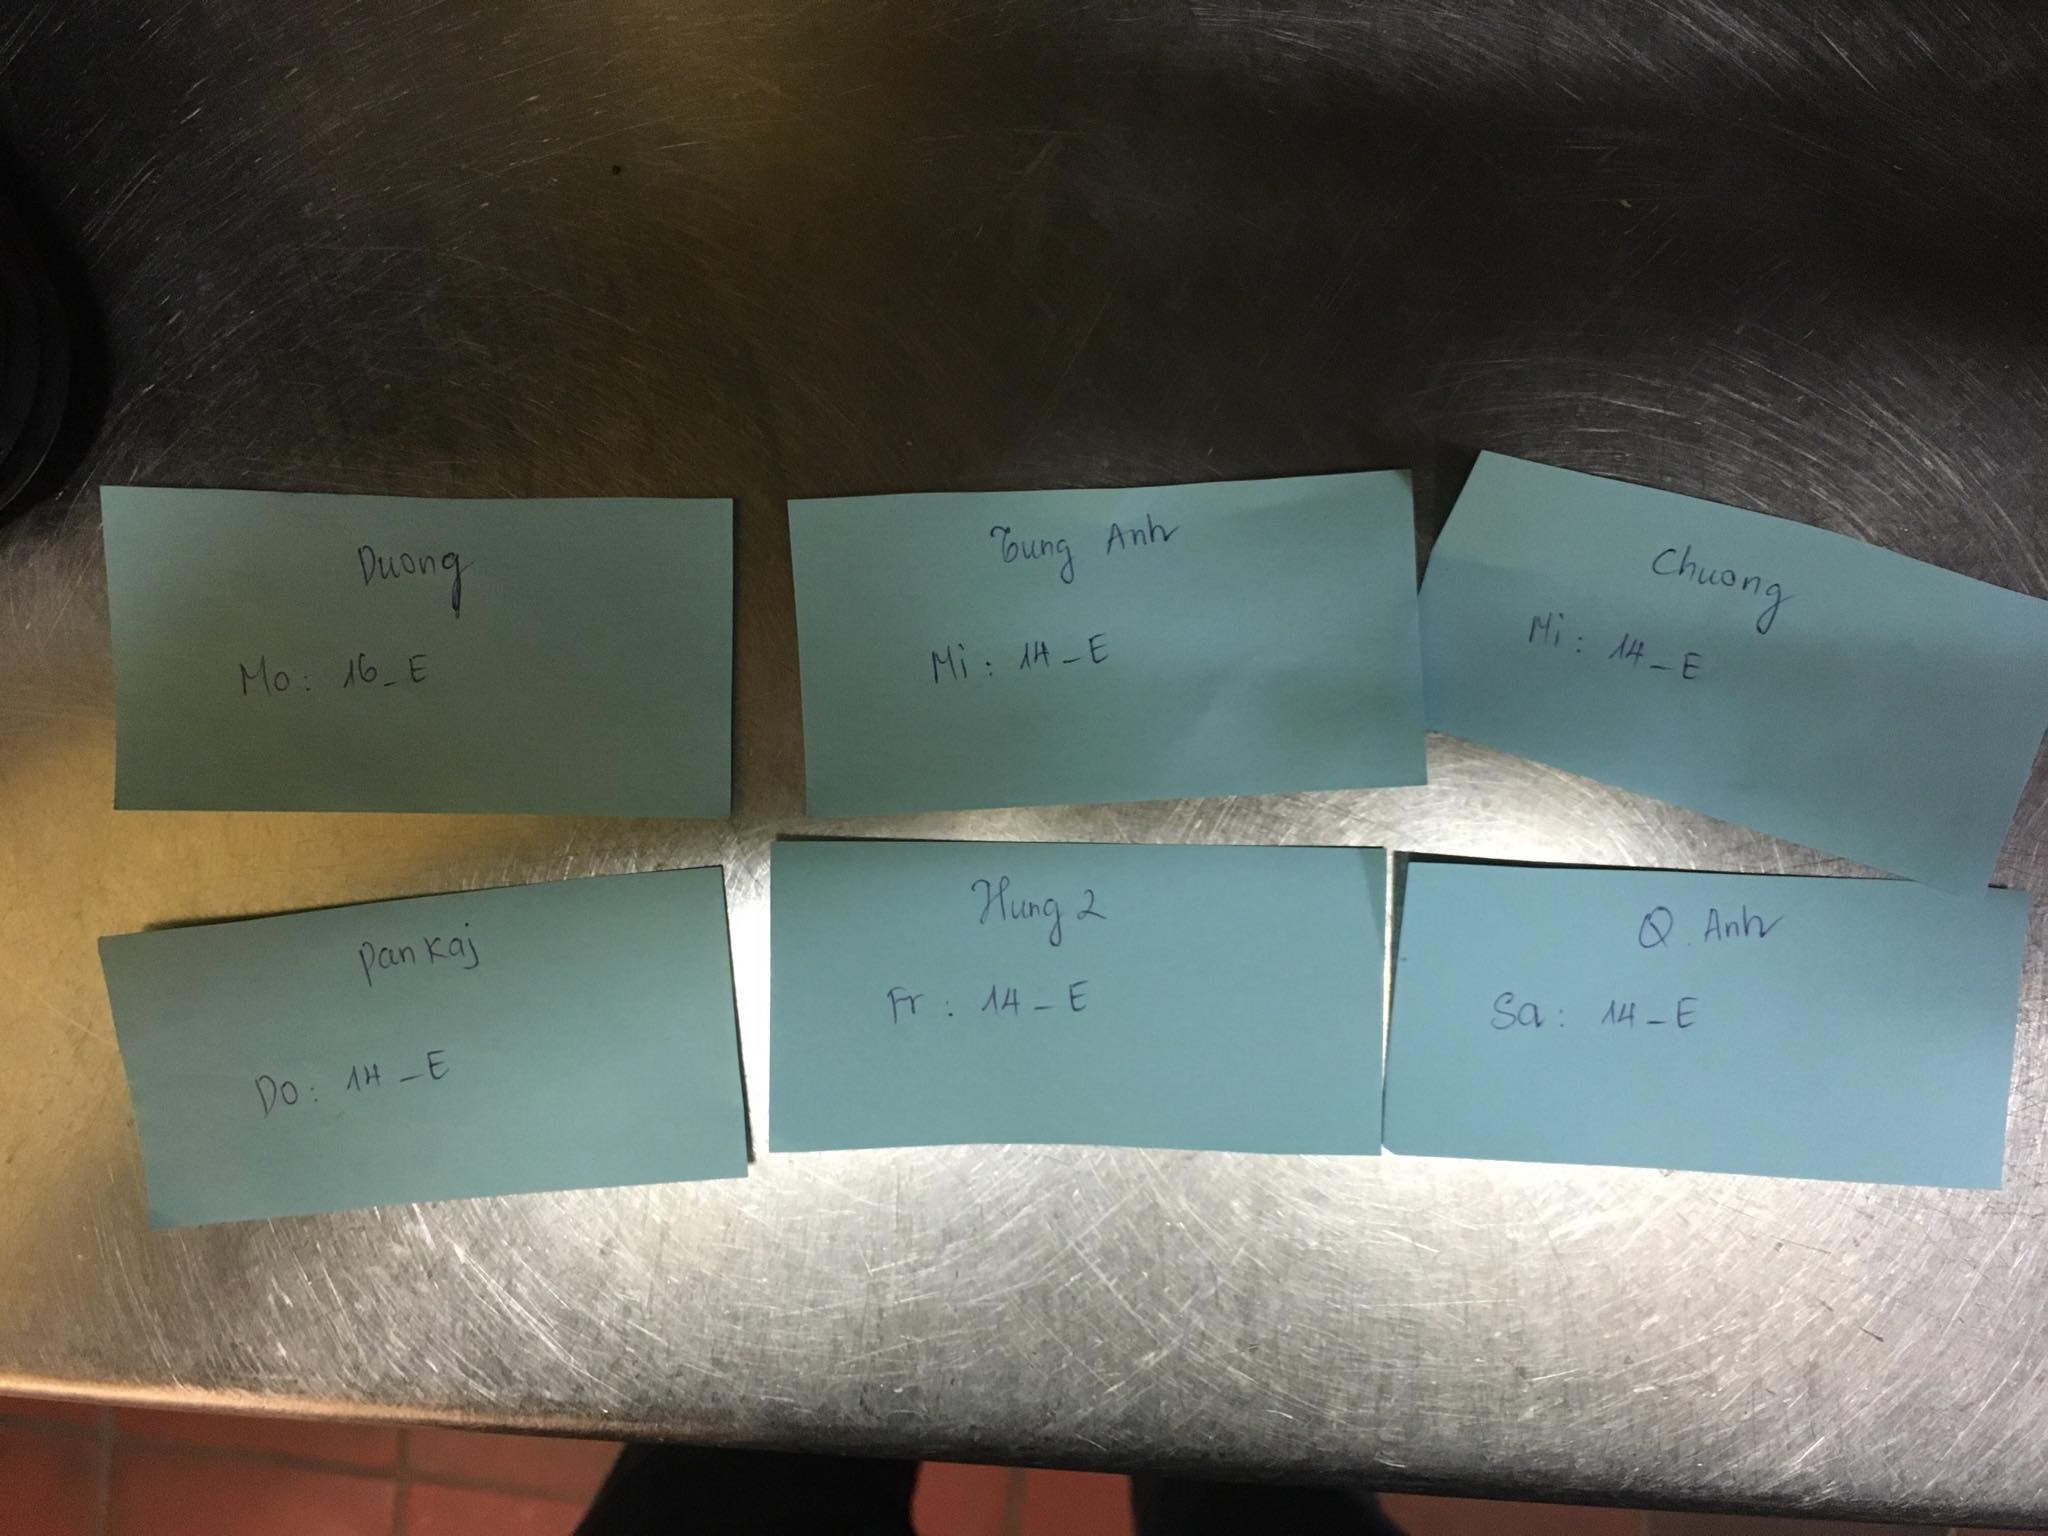 Duong
Mo: 16_E
Tung Anh
Mi: 14_E
Chuong
Mi: 14_E
pankaj
Do: 14_E
Hung 2
Fr: 14_E
Q. Anh
Sa: 14_E